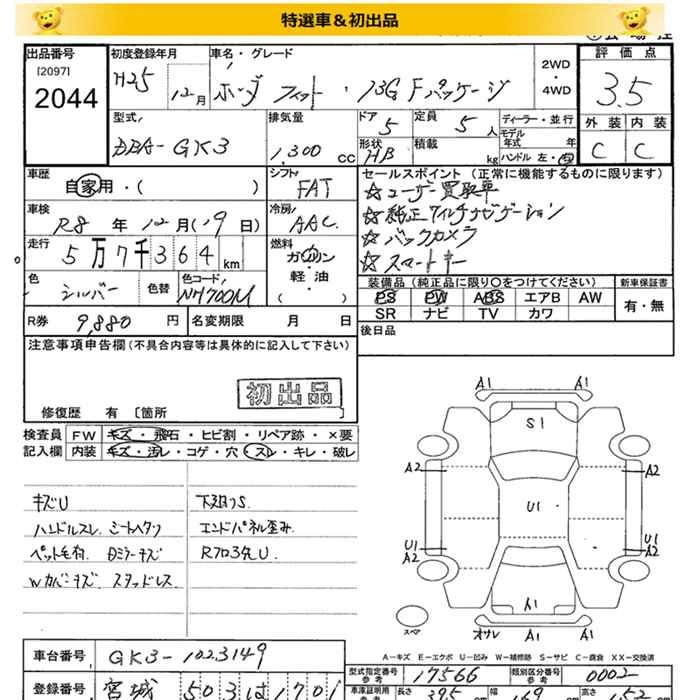 特選車＆初出品
出品番号 初度登録年月 車名・グレード 2WD・4WD 評価点
[2097]
2044 H25 12月 ホンダ フィット・13G Fパッケージ 3.5
型式 排気量 ドア 定員 ディーラー・並行 外装 内装
DBA-GK3 1,300 cc 5 5人 モデル年式 年 C C
形状 積載 HB kg ハンドル 左・右
車歴 シフト セールスポイント (正常に機能するものに限ります)
自家用・( ) FAT ☆ユーザー買取車
車検 冷房 ☆純正フルチナビゲーション
R8年12月(19日) AAC ☆バックカメラ
走行 燃料 ☆スマートキー
5万7千364km ガソリン・軽・油
( )
色 色替 色コード 装備品 (純正品に限り○をつけてください) 新車保証書
シルバー NH700M PS PW ABS エアB AW 有・無
SR ナビ TV カワ
R券 9,880円 名変期限 月 日 後日品
注意事項申告欄(不具合内容等は具体的に記入して下さい)
初出品
修復歴 有 [箇所 ]
検査員 FW キズ・飛石・ヒビ割・リペア跡・×要
記入欄 内装 キズ・汚レ・コゲ・穴・スレ・キレ・破レ
キズU 下廻りS
ハンドルスレ シートヘタリ エンドパネル歪み
ペット毛有 Dミラーキズ
Wカバーキズ スタッドレス
A1 A1
S1
A2 A2
U1
U1 A2 U1 A2
A1
スペア オサレ A1 A1
A－キズ E－エクボ U－凹み W－補修跡 S－サビ C－腐食 XX－交換済
車台番号 GK3-1023149 型式指定番号 参考 17566 類別区分番号 参考 0002
登録番号 宮城 503 は1701 車庫証明用 参考 長さ 395 幅 169 高さ 152